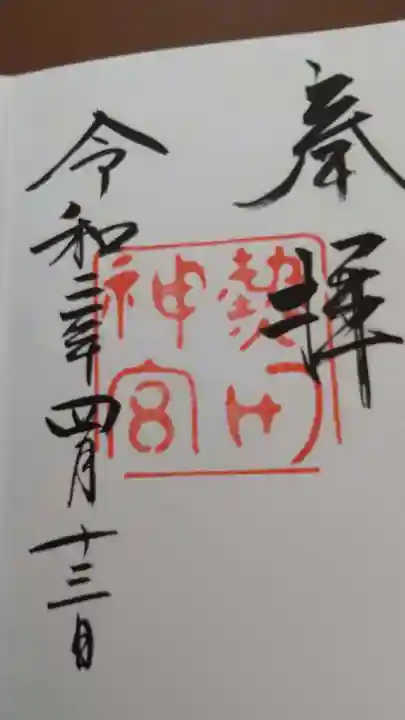 奉拝
熱田
神宮
令和三年四月十三日